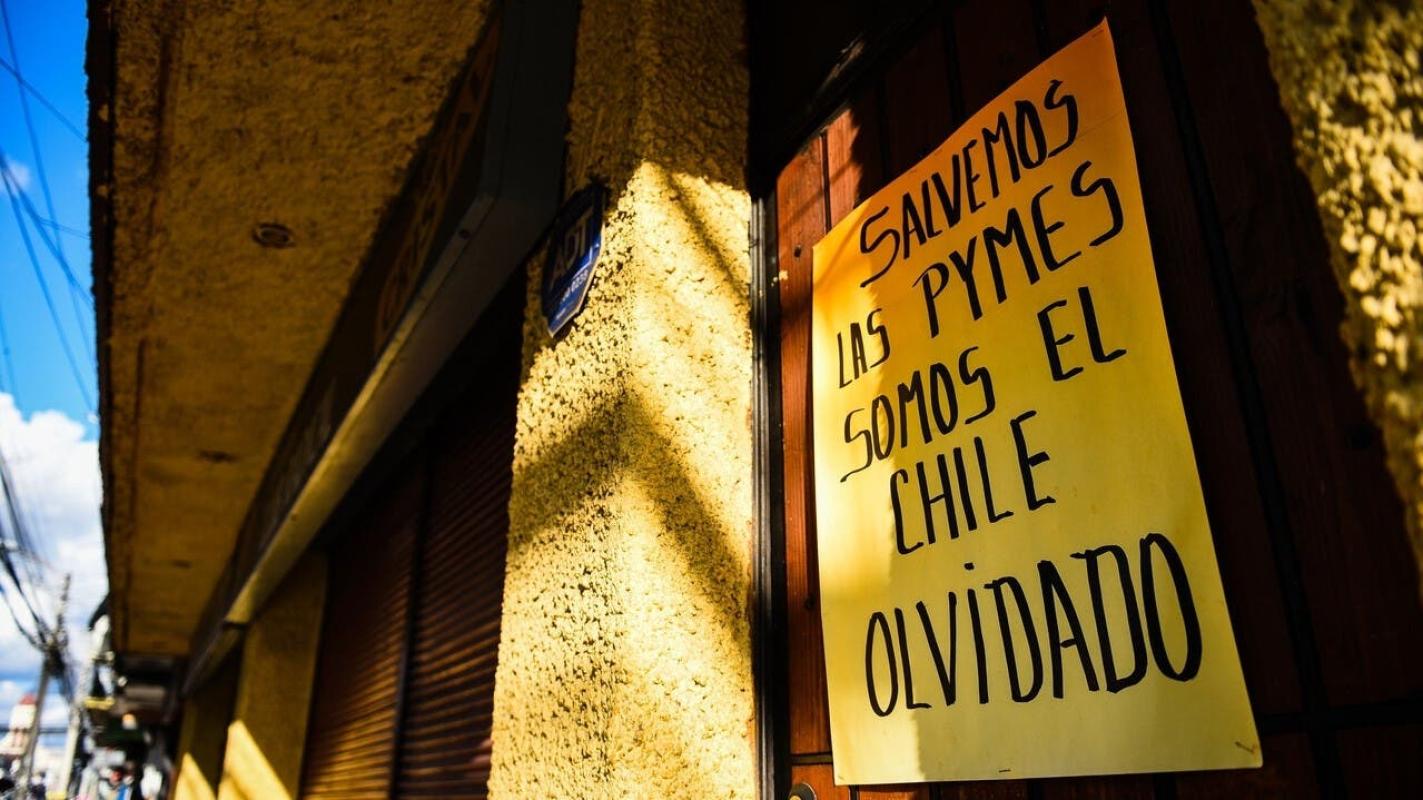 SALVEMOS
LAS PYMES
SOMOS EL
CHILE
OLViDADO
ADT